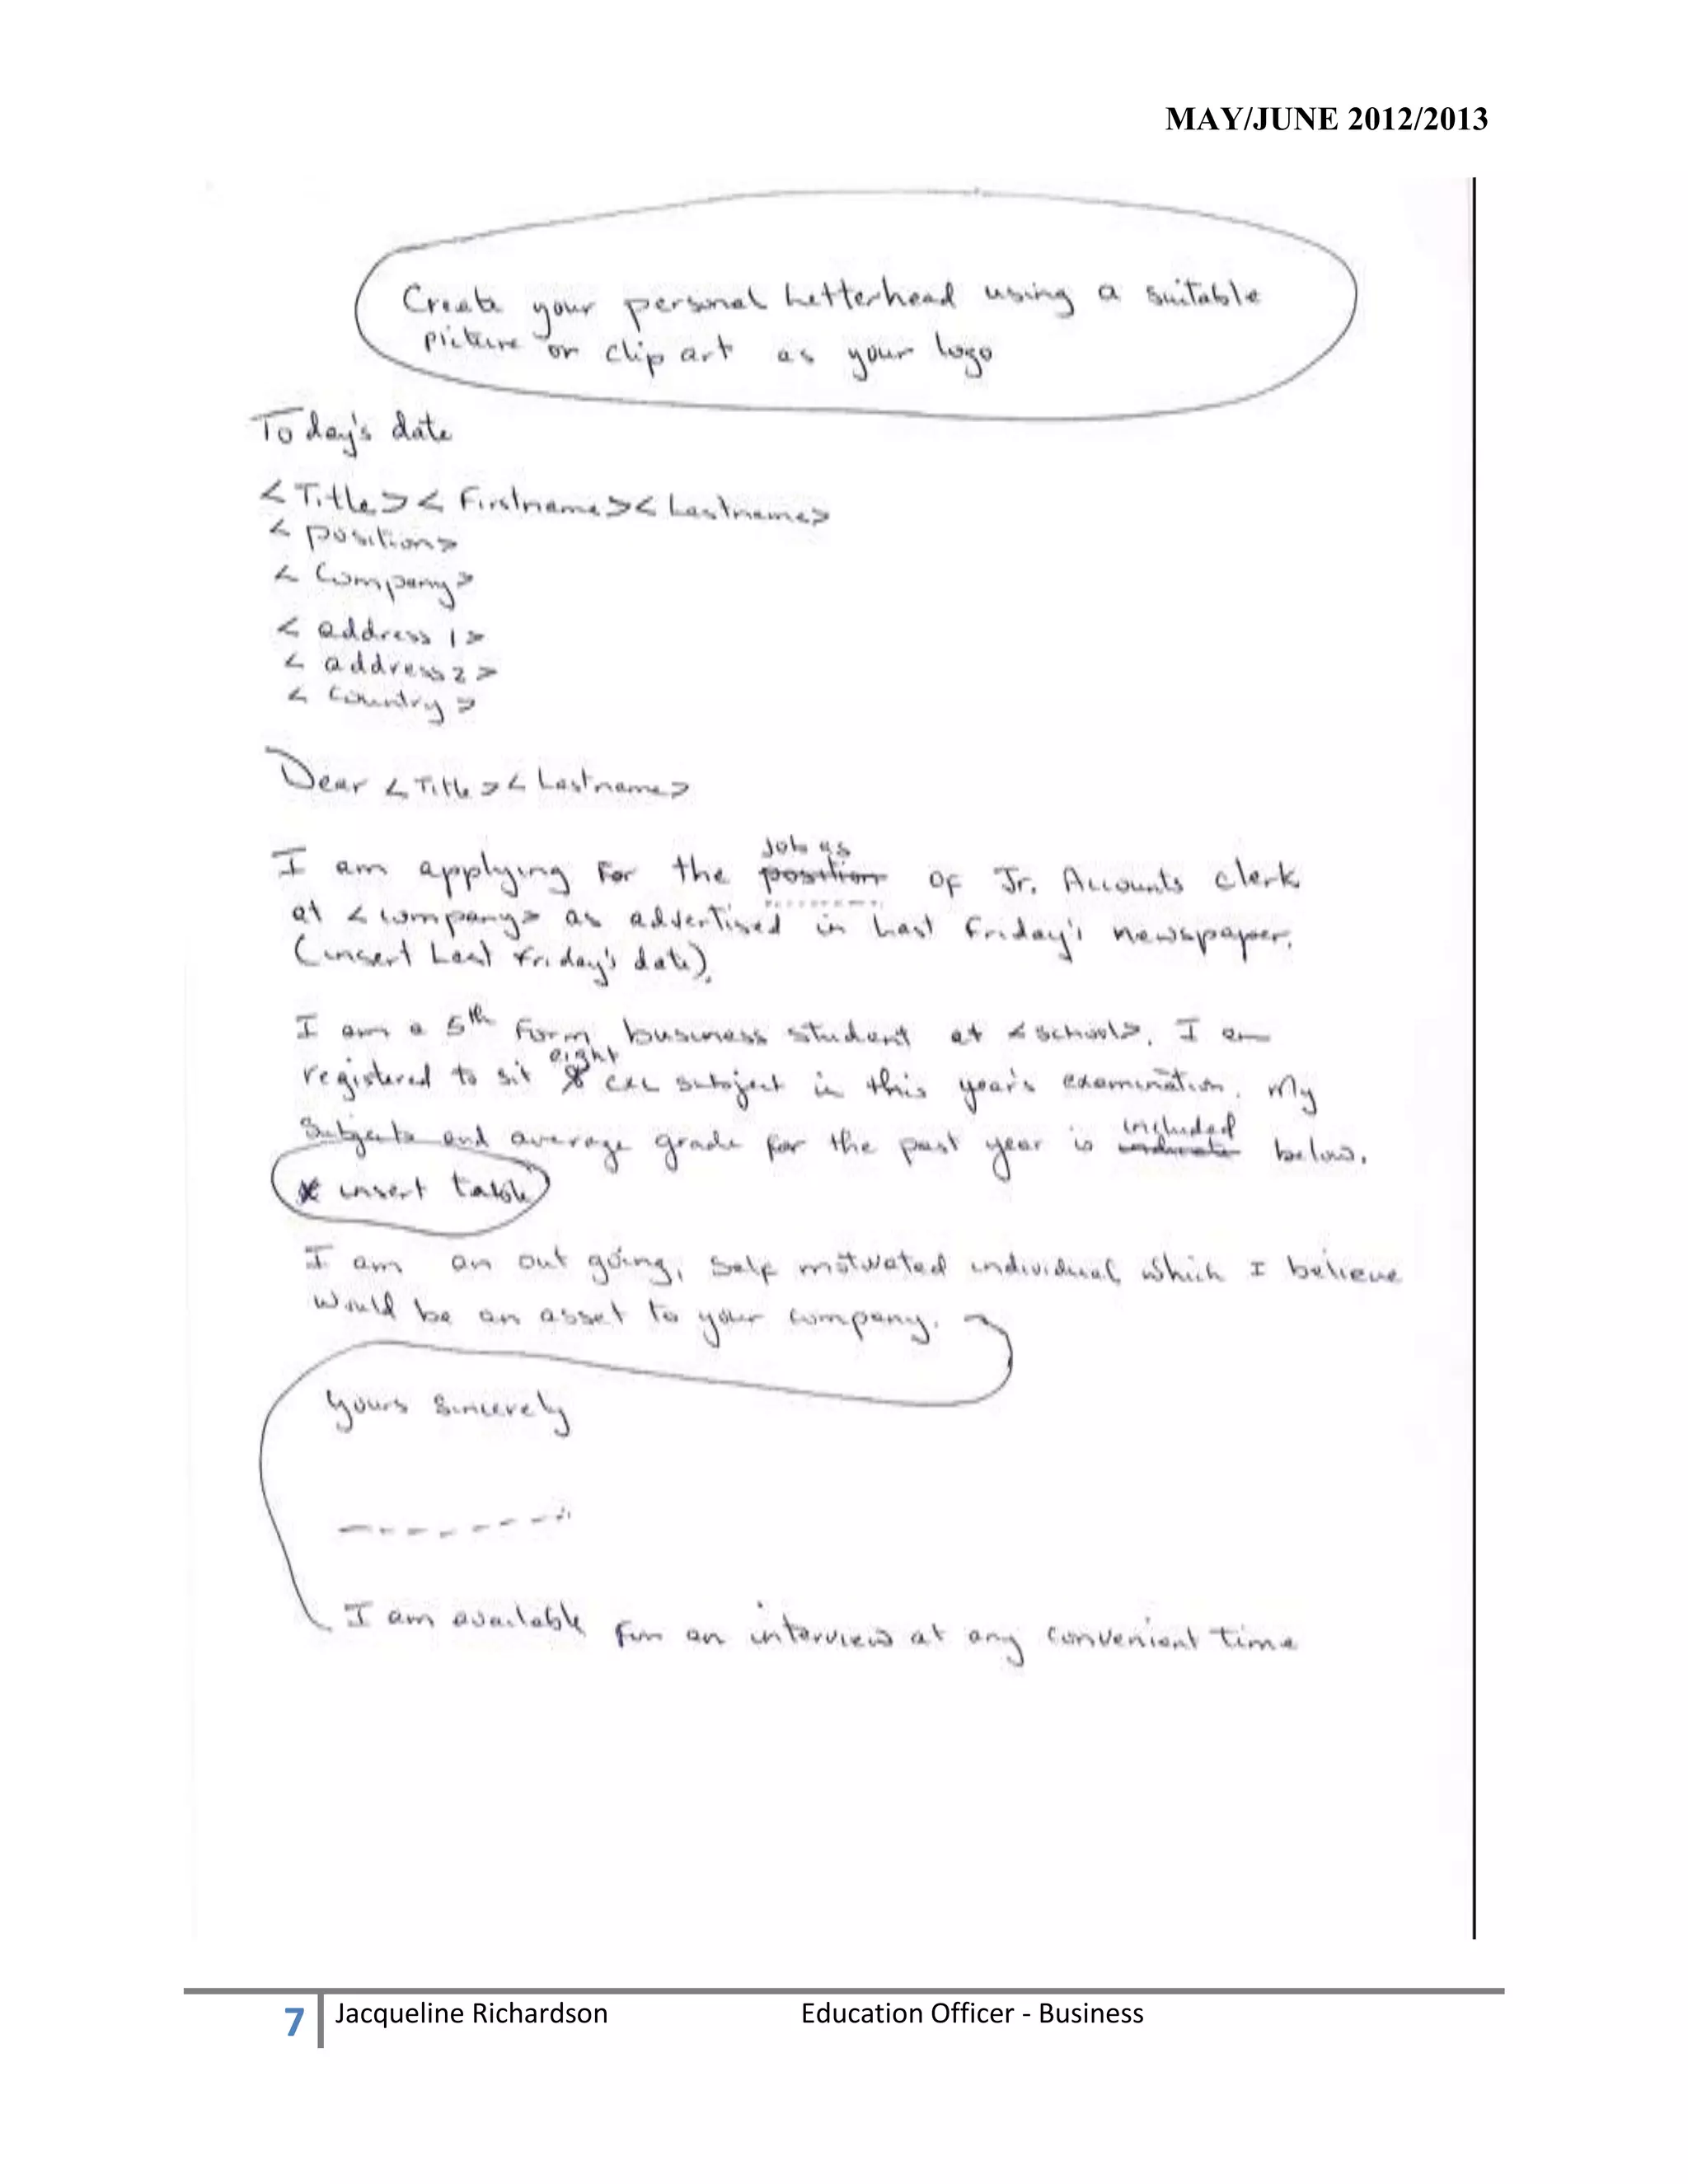 MAY/JUNE 2012/2013
Create your personal Letterhead using a suitable
picture or clip art as your logo
Today's date
<Title><Firstname><Lastname>
<position>
<Company>
<address 1>
<address 2>
<Country>
Dear <Title><Lastname>
job as
I am applying for the position of Jr. Accounts clerk
at <company> as advertised in Last Friday's newspaper.
(insert Last Friday's date).
I am a 5th Form business student at <school>. I am
eight
registered to sit 8 CXC subject in this year's examination. My
included
Subjects and average grade for the past year is indicate below.
* insert table
I am an out going, self motivated individual which I believe
would be an asset to your company.
Yours sincerely
I am available for an interview at any convenient time
7 Jacqueline Richardson Education Officer - Business